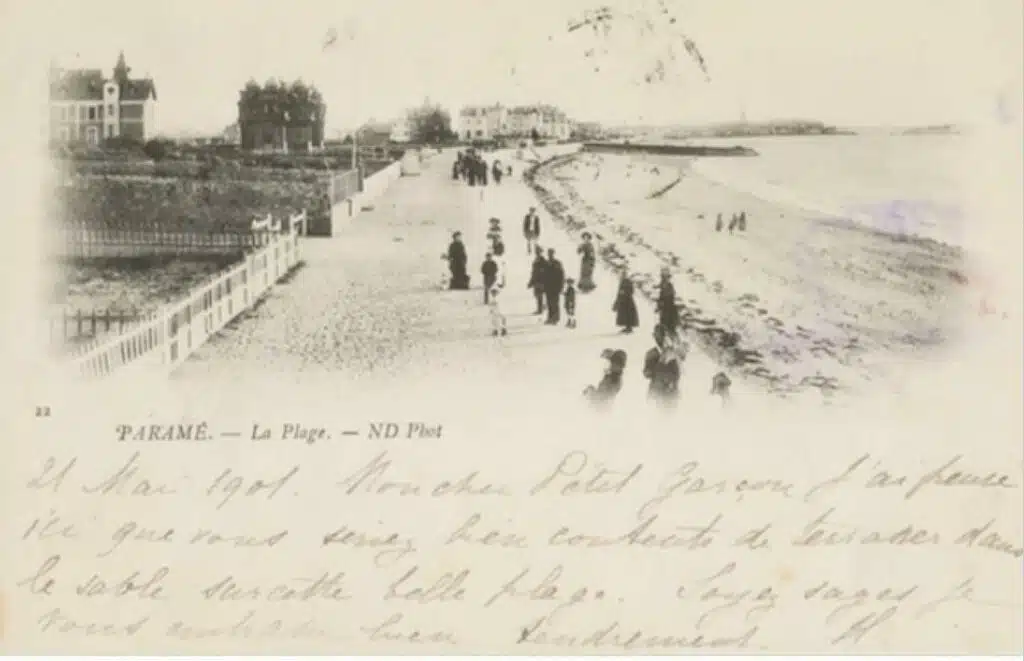 22
PARAMÉ. — La Plage. — ND Phot
21 Mai 1901. Mon cher Petit Garçon J'ai pensé
ici que vous seriez bien contents de terrasser dans
le sable sur cette belle plage. Soyez sages je
vous embrasse bien tendrement. H